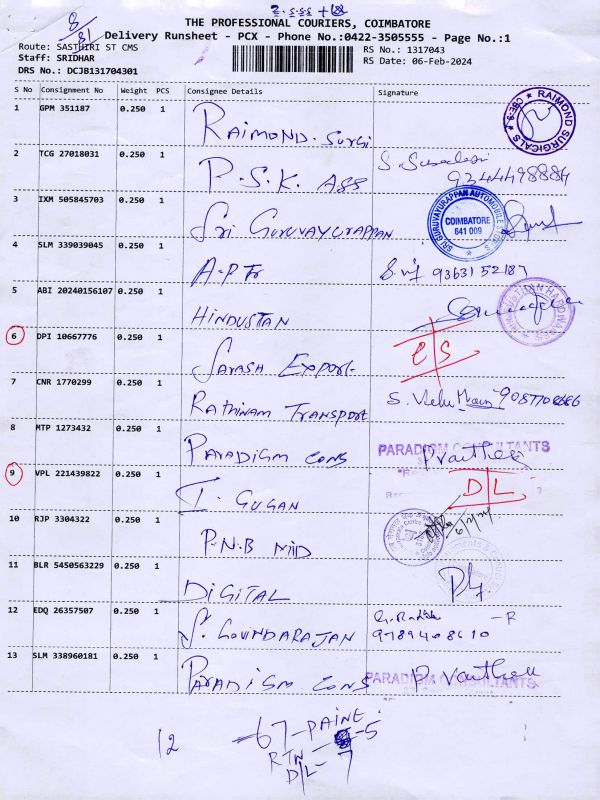 8/81
THE PROFESSIONAL COURIERS, COIMBATORE
Delivery Runsheet - PCX - Phone No.:0422-3505555 - Page No.:1
Route: SASTHIRI ST CMS
RS No.: 1317043
Staff: SRIDHAR
RS Date: 06-Feb-2024
DRS No.: DCJB131704301
S No Consignment No Weight PCS Consignee Details Signature
1 GPM 351187 0.250 1 RAIMOND. SURGI RAIMOND SURGICALS
2 TCG 27018031 0.250 1 P.S.K. ASS
3 IXM 505845703 0.250 1 SRI GURUVAYURAPPAN SRI GURUVAYURAPPAN AUTOMOBILES COIMBATORE 641 009
4 SLM 339039045 0.250 1 A.P Tr 93631 52187
5 ABI 20240156107 0.250 1 HINDUSTAN
6 DPI 10667776 0.250 1 SARASH EXPORT C/S
7 CNR 1770299 0.250 1 RATHINAM TRANSPORT
8 MTP 1273432 0.250 1 PARADIGM CONS PARADIGM CONSULTANTS
9 VPL 221439822 0.250 1 I. GUGAN D/L
10 RJP 3304322 0.250 1 P.N.B MID
11 BLR 5450563229 0.250 1 DIGITAL
12 EDQ 26357507 0.250 1 S. GOVINDARAJAN 9789408610 -R
13 SLM 338960181 0.250 1 PARADIGM CONS PARADIGM CONSULTANTS
12 -67-PAINE
RTN - 5
D/L - 7